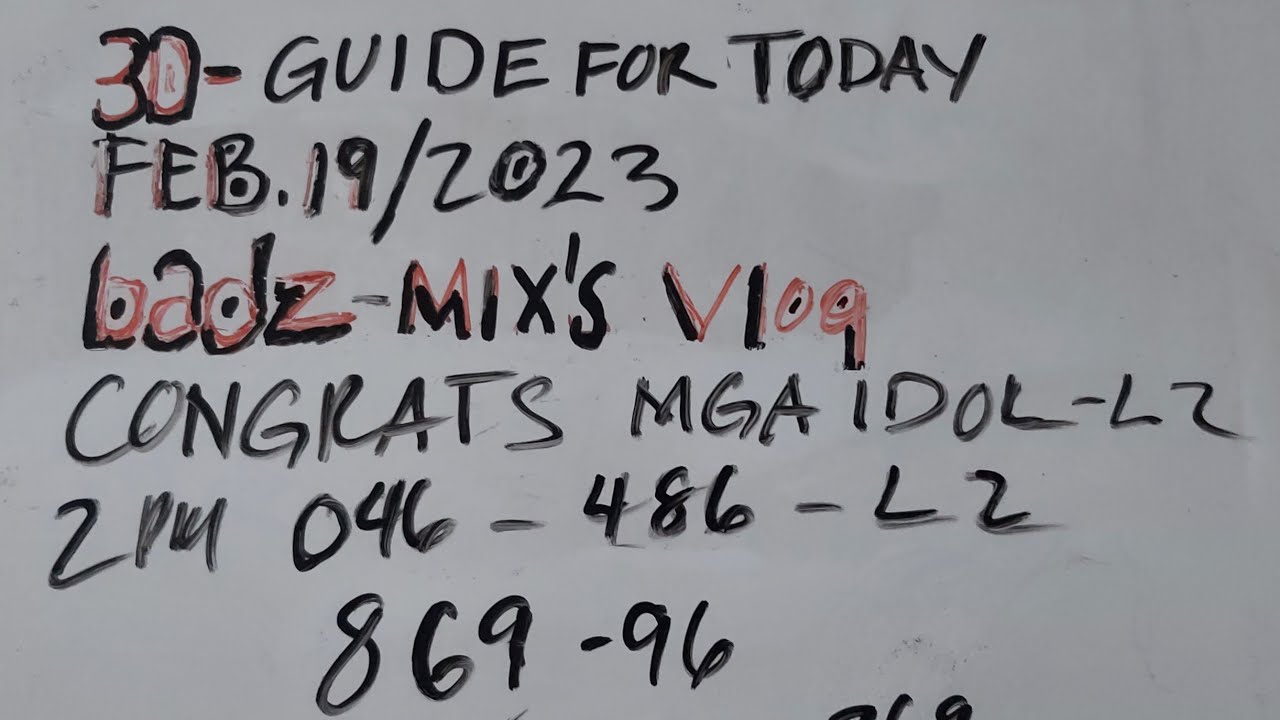 30- GUIDE FOR TODAY
FEB.19/2023
badz-MIX'S Vlog
CONGRATS MGA IDOL-L2
2PM 046 - 486 - L2
869 -96